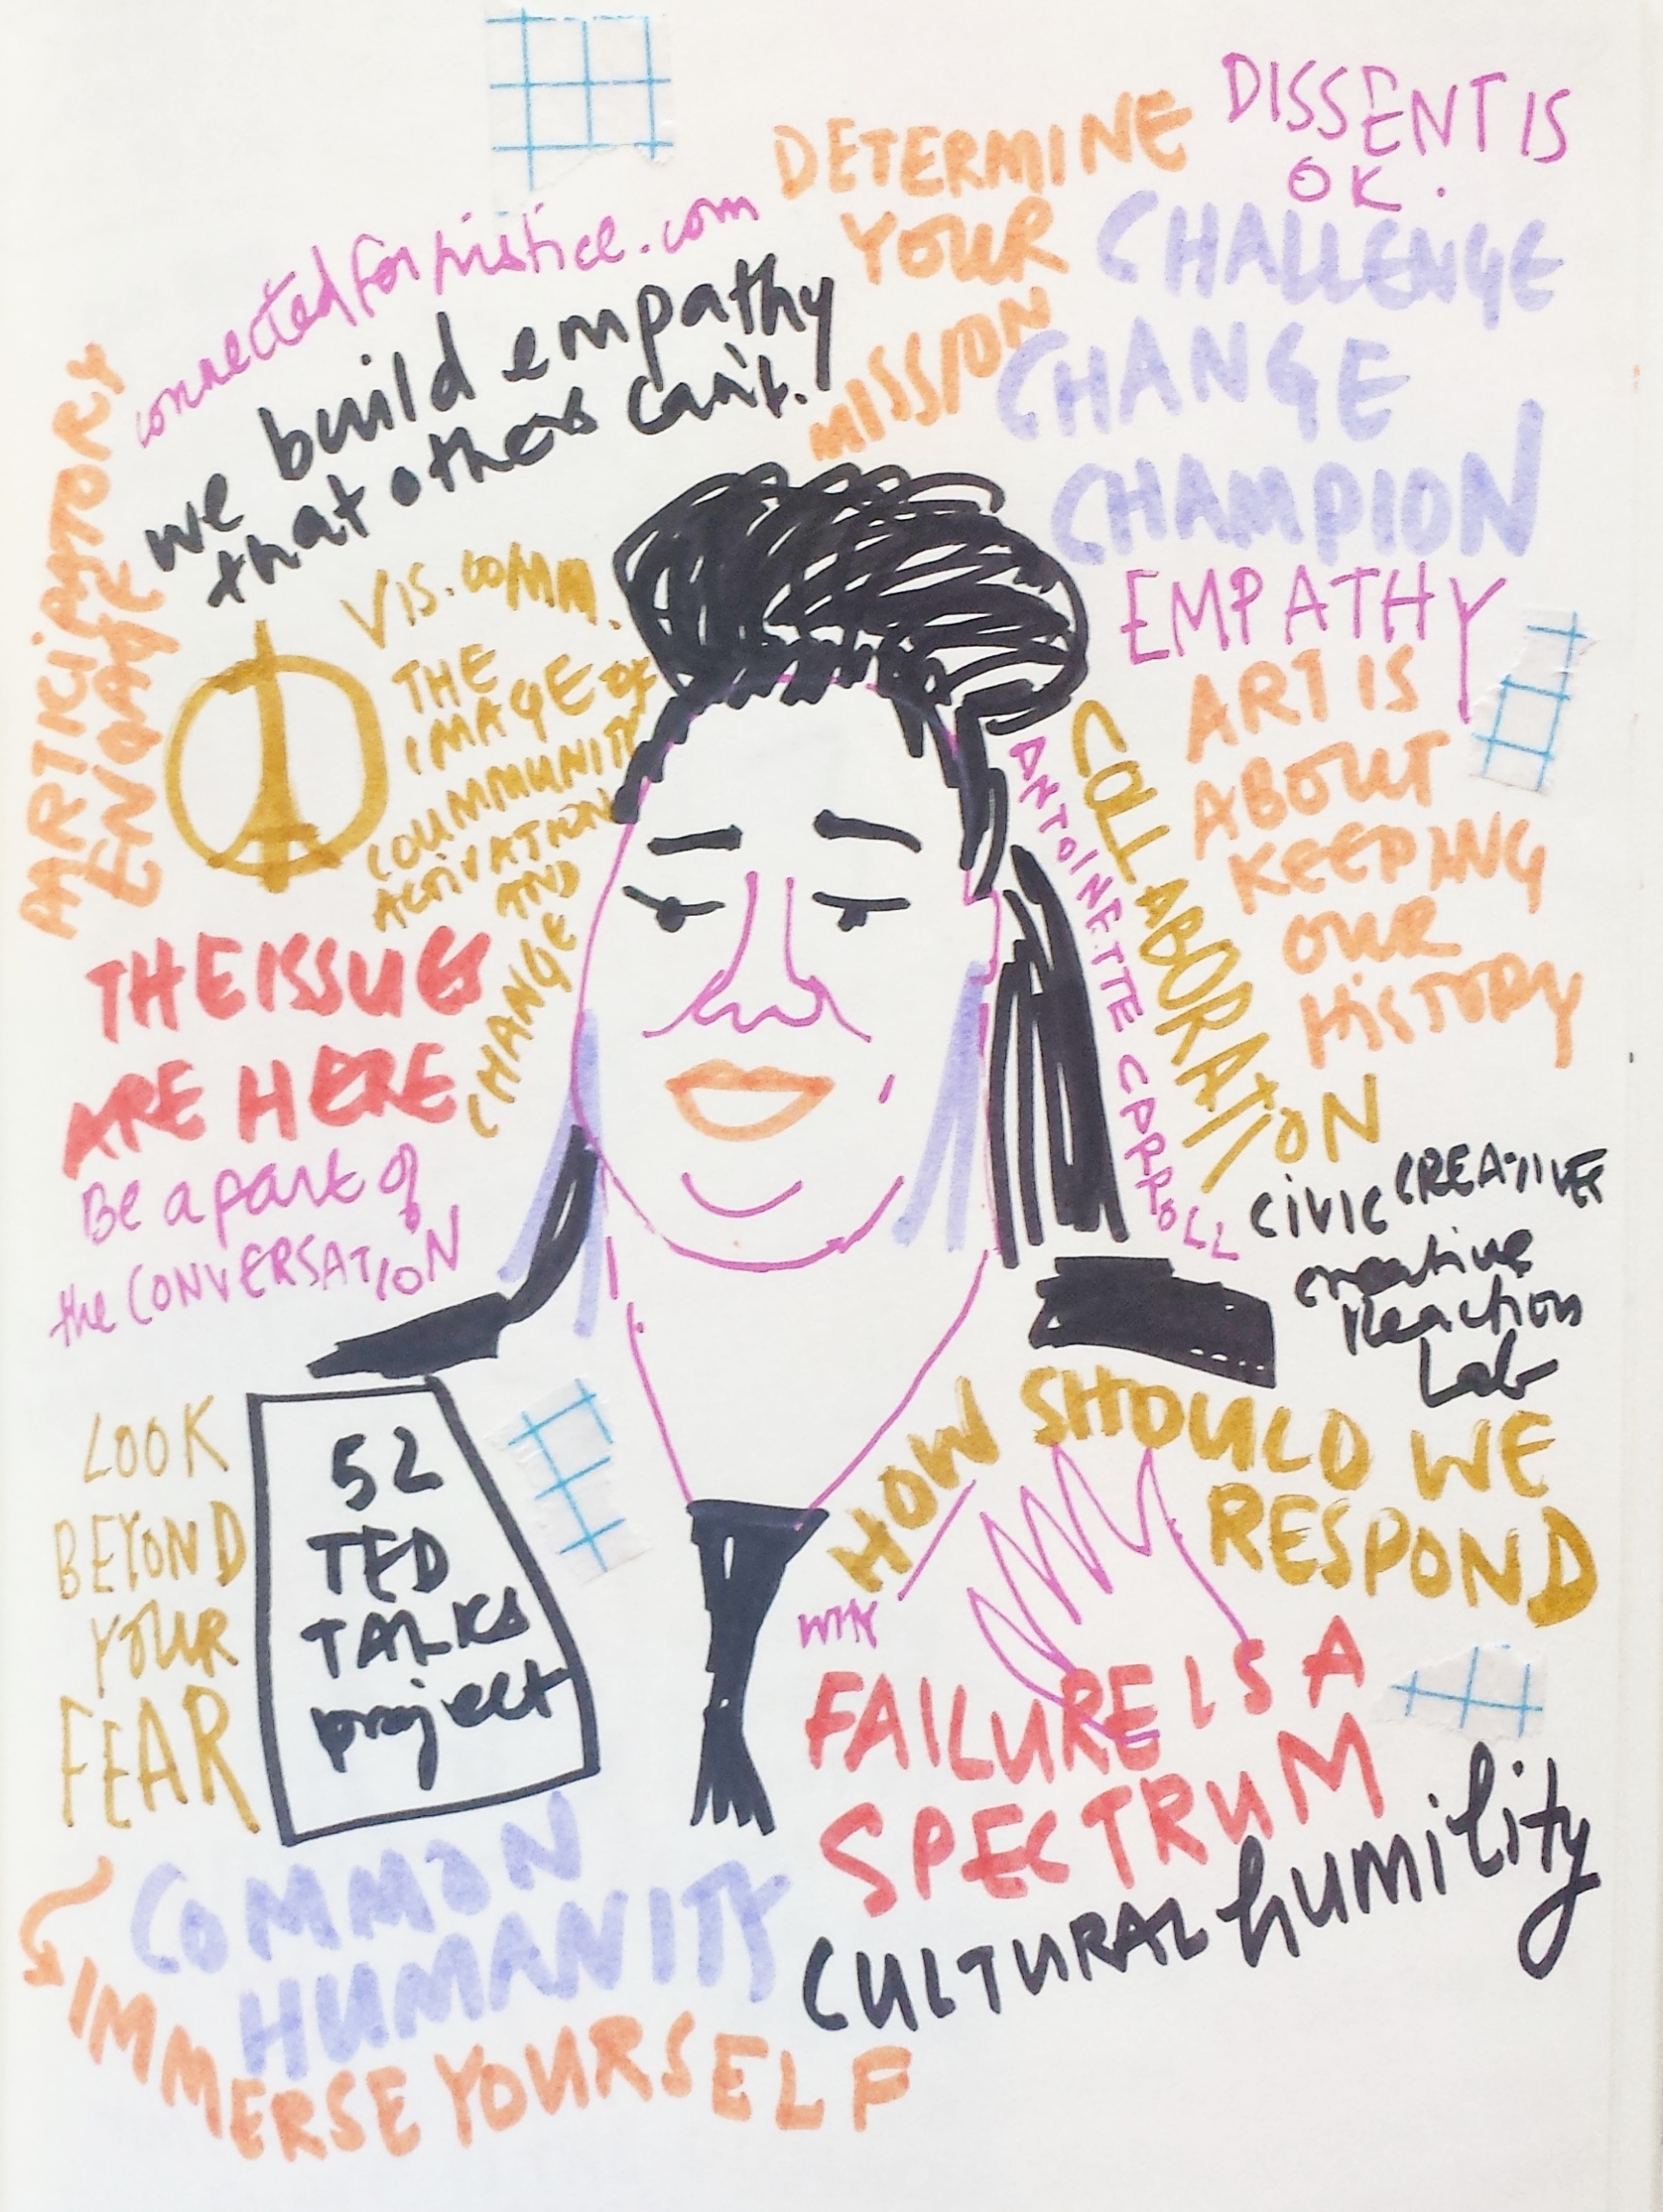 DISSENT IS
OK.
DETERMINE
YOUR
MISSION
CHALLENGE
CHANGE
CHAMPION
connectedforjustice.com
we build empathy
that others can't.
PARTICIPATORY
ENGAGE
VIS. COMM.
THE
IMAGE OF
COUMMUNITY
ACTIVATION
AND
CHANGE
EMPATHY
ART IS
ABOUT
KEEPING
OUR
HISTORY
COLLABORATION
ANTOINETTE CARROLL
THE ISSUES
ARE HERE
Be a part of
the CONVERSATION
CIVIC CREATIVES
creative
Reaction
Lab
LOOK
BEYOND
YOUR
FEAR
52
TED
TALKS
project
HOW SHOULD WE
RESPOND
WHY
FAILURE IS A
SPECTRUM
CULTURAL humility
COMMON
HUMANITY
IMMERSE YOURSELF